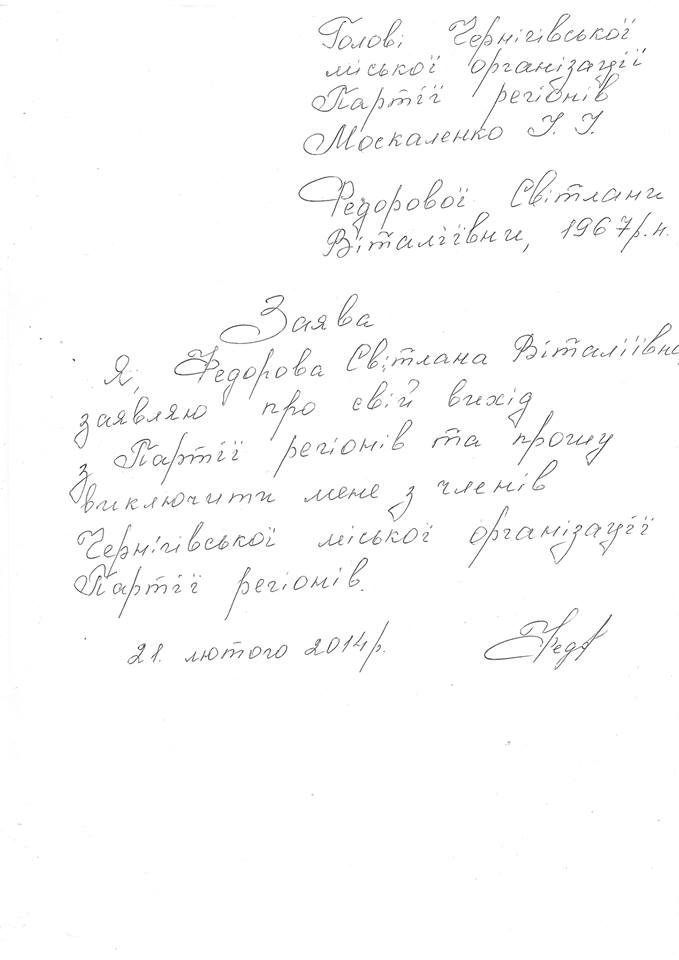 Голові Чернігівської
міської організації
Партії регіонів
Москаленко І. І.
Федорової Світлани
Віталіївни, 1967р.н.
Заява
Я, Федорова Світлана Віталіївна,
заявляю про свій вихід
з Партії регіонів та прошу
виключити мене з членів
Чернігівської міської організації
Партії регіонів.
21. лютого 2014р.